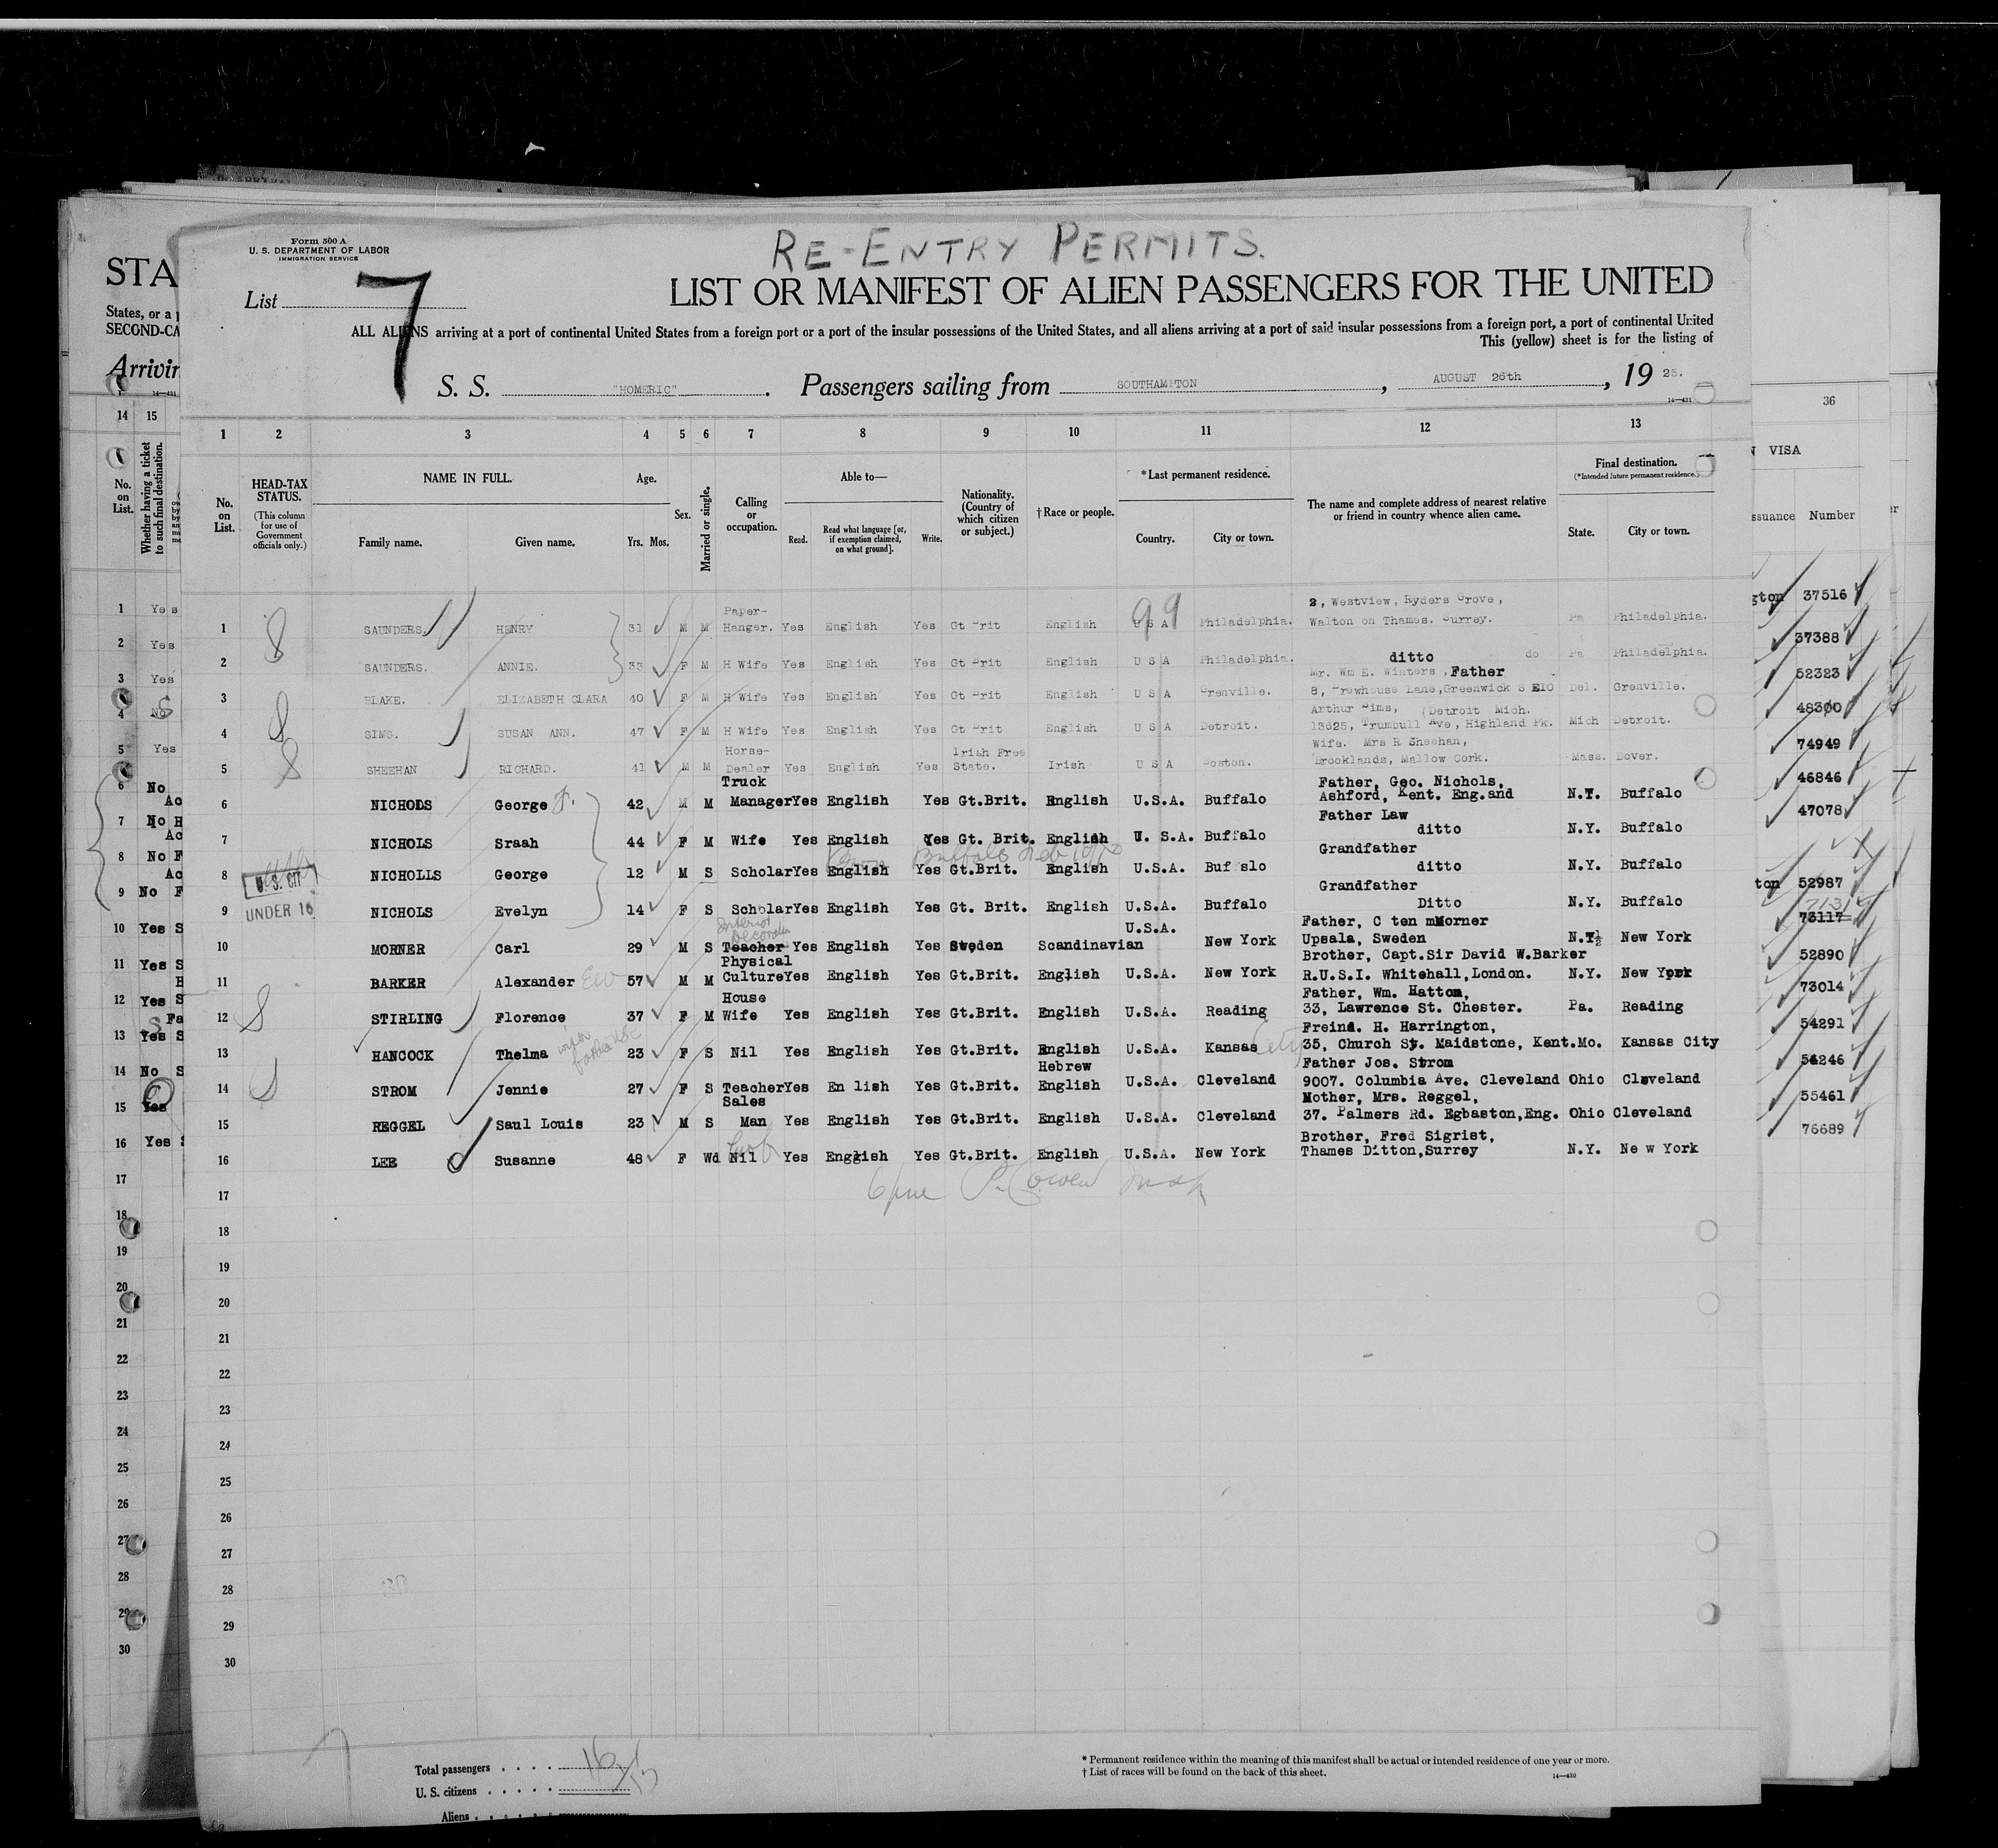 RE-ENTRY PERMITS.
Form 500 A
U. S. DEPARTMENT OF LABOR
IMMIGRATION SERVICE
List 7
LIST OR MANIFEST OF ALIEN PASSENGERS FOR THE UNITED
STA
ALL ALIENS arriving at a port of continental United States from a foreign port or a port of the insular possessions of the United States, and all aliens arriving at a port of said insular possessions from a foreign port, a port of continental United
This (yellow) sheet is for the listing of
States, or a
SECOND-CA
Arrivin
S. S. "HOMERIC". Passengers sailing from SOUTHAMPTON, AUGUST 26th, 19 25.
14—431
1 2 3 4 5 6 7 8 9 10 11 12 13
14 15
36
No. on List.
HEAD-TAX STATUS.
(This column for use of Government officials only.)
NAME IN FULL.
Family name. Given name.
Age.
Yrs. Mos.
Sex.
Married or single.
Calling or occupation.
Able to—
Read. Read what language [or, if exemption claimed, on what ground]. Write.
Nationality. (Country of which citizen or subject.)
†Race or people.
*Last permanent residence.
Country. City or town.
The name and complete address of nearest relative or friend in country whence alien came.
Final destination.
(*Intended future permanent residence.)
State. City or town.
No. on List.
Whether having a ticket to such final destination.
VISA
ssuance Number
1 SAUNDERS. HENRY 31 M M Paper-Hanger. Yes English Yes Gt Brit English U S A Philadelphia. 2, Westview, Ryders Grove, Walton on Thames. Surrey. Pa Philadelphia.
2 SAUNDERS. ANNIE. 33 F M H Wife Yes English Yes Gt Brit English U S A Philadelphia. ditto do Pa Philadelphia.
3 BLAKE. ELIZABETH CLARA 40 F M H Wife Yes English Yes Gt Brit English U S A Grenville. Mr. Wm E. Winters, Father 8, Crowhouse Lane, Greenwick S E10 Del. Grenville.
4 SIMS. SUSAN ANN. 47 F M H Wife Yes English Yes Gt Brit English U S A Detroit. Arthur Sims, (Detroit Mich. 13625, Trumbull Ave, Highland Pk. Mich Detroit.
5 SHEEHAN RICHARD. 41 M M Horse-Dealer Yes English Yes Irish Free State. Irish U S A Boston. Wife. Mrs R Sheehan, Brooklands, Mallow Cork. Mass. Dover.
6 NICHOLS George F. 42 M M Truck Manager Yes English Yes Gt.Brit. English U.S.A. Buffalo Father, Geo. Nichols, Ashford, Kent. Eng.and N.Y. Buffalo
7 NICHOLS Sraah 44 F M Wife Yes English Yes Gt. Brit. English U. S.A. Buffalo Father Law ditto N.Y. Buffalo
U. S. CIT
8 NICHOLLS George 12 M S Scholar Yes English Yes Gt.Brit. English U.S.A. Buf slo Grandfather ditto N.Y. Buffalo
UNDER 16
9 NICHOLS Evelyn 14 F S Scholar Yes English Yes Gt. Brit. English U.S.A. Buffalo Grandfather Ditto N.Y. Buffalo
Interior Decorator
10 MORNER Carl 29 M S Teacher Yes English Yes Sweden Scandinavian U.S.A. New York Father, C ten mMorner Upsala, Sweden N.Y. New York
11 BARKER Alexander 57 M M Physical Culture Yes English Yes Gt.Brit. English U.S.A. New York Brother, Capt.Sir David W.Barker R.U.S.I. Whitehall, London. N.Y. New York
12 STIRLING Florence 37 F M House Wife Yes English Yes Gt.Brit. English U.S.A. Reading Father, Wm. Hattom, 33, Lawrence St. Chester. Pa. Reading
13 HANCOCK Thelma 23 F S Nil Yes English Yes Gt.Brit. English U.S.A. Kansas City Freind. H. Harrington, 35, Church St. Maidstone, Kent. Mo. Kansas City
14 STROM Jennie 27 F S Teacher Yes En lish Yes Gt.Brit. Hebrew English U.S.A. Cleveland Father Jos. Strom 9007. Columbia Ave. Cleveland Ohio Cleveland
15 REGGEL Saul Louis 23 M S Sales Man Yes English Yes Gt.Brit. English U.S.A. Cleveland Mother, Mrs. Reggel, 37. Palmers Rd. Egbaston, Eng. Ohio Cleveland
16 LEE Susanne 48 F Wd Nil Yes English Yes Gt.Brit. English U.S.A. New York Brother, Fred Sigrist, Thames Ditton, Surrey N.Y. Ne w York
17
18
19
20
21
22
23
24
25
26
27
28
29
30
1 Yes
2 Yes
3 Yes
4 No
5 Yes
6 No
7 No
8 No F
9 No F
10 Yes S
11 Yes S
12 Yes S
13 Yes S
14 No S
15 Yes
16 Yes
17
18
19
20
21
22
23
24
25
26
27
28
29
30
gton 37516
37388
52323
48300
74949
46846
47078
ton 52987
73117
52890
73014
54291
54246
55461
76689
Total passengers 16
U. S. citizens
Aliens
* Permanent residence within the meaning of this manifest shall be actual or intended residence of one year or more.
† List of races will be found on the back of this sheet.
14—430